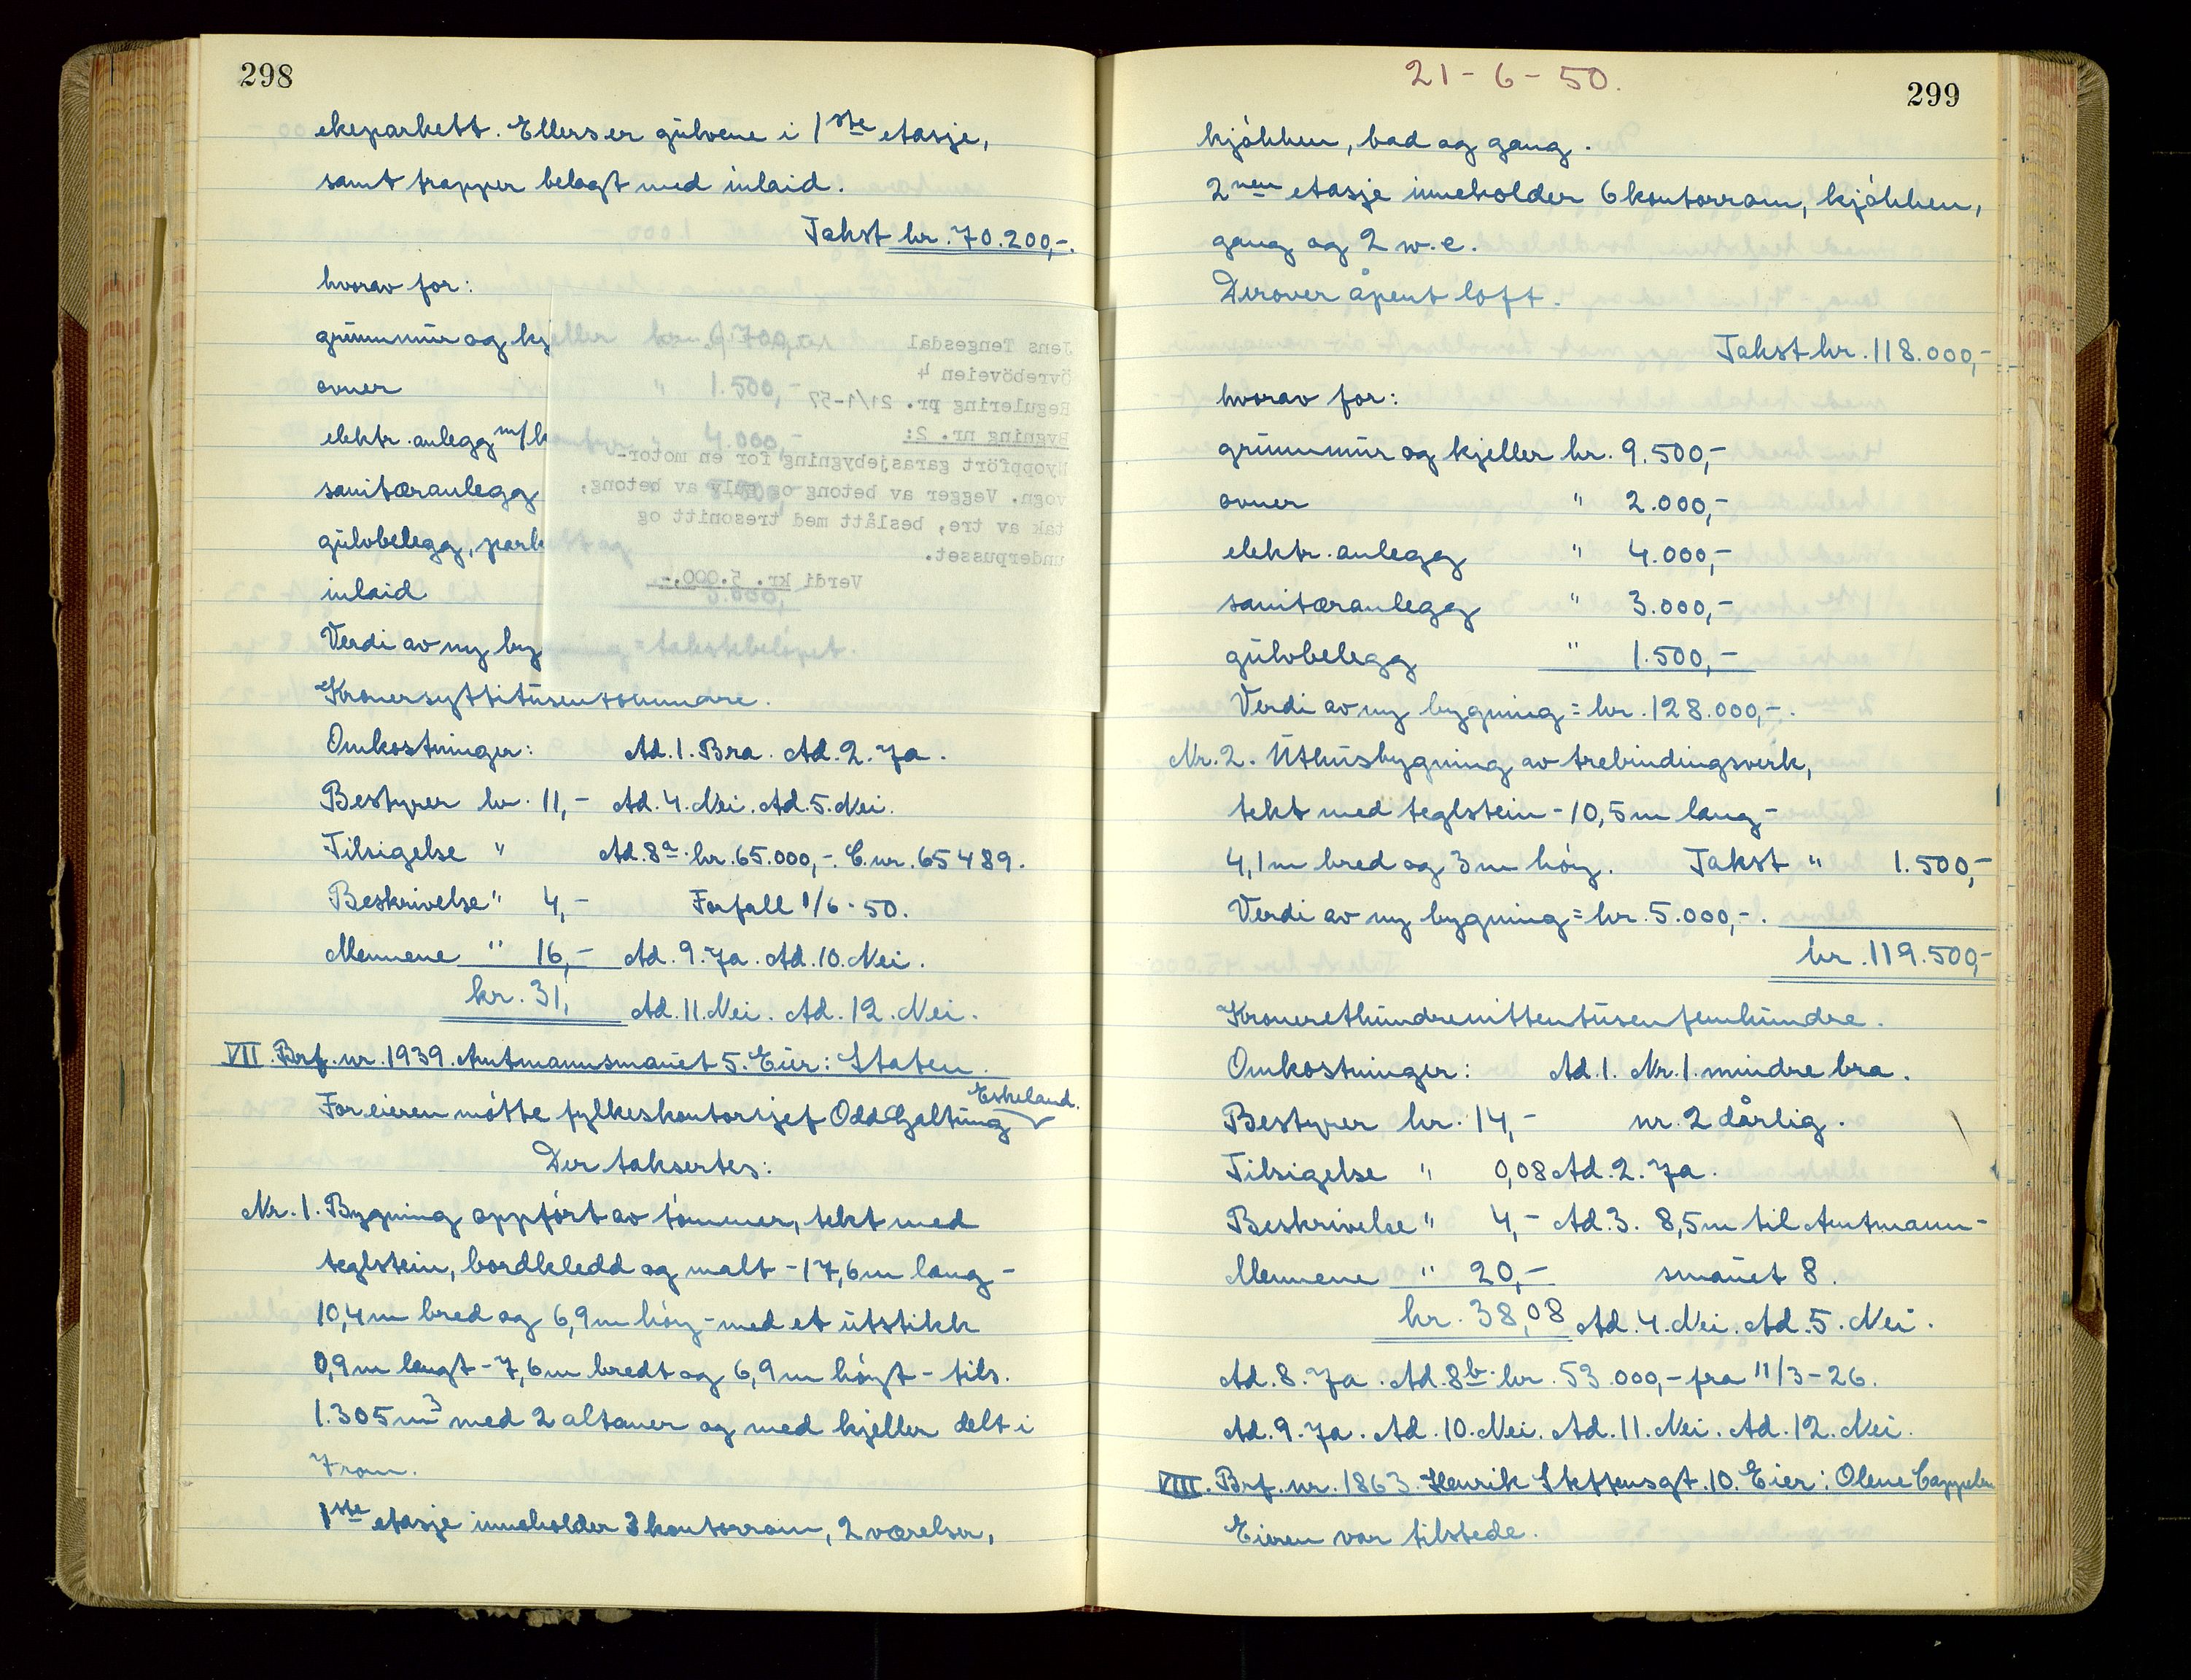 298
ekeparkett. Ellers er gulvene i 1ste etasje,
samt trapper belagt med inlaid.
Takst kr. 70.200,-.
hvorav for:
grunnmur og kj
ovner
elektr. anlegg m/k
sanitæranlegg
gulvbelegg, park
inlaid
Verdi av ny byg
Jens Tengesdal
Övreböveien 4
Regulering pr. 21/1-57
Bygning nr. 2:
Nyoppfört garasjebygning for en motor-
vogn. Vegger av betong og gulv av betong,
tak av tre, beslått med tresonitt og
underpusset.
Verdi kr. 5.000,-.
Kronersyttitusentohundre.
Omkostninger: Ad. 1. Bra. Ad. 2. Ja.
Bestyrer kr. 11,- Ad. 4. Nei. Ad. 5. Nei.
Tilsigelse " Ad. 8a. kr. 65.000,-. C.nr. 65489.
Beskrivelse " 4,- Forfall 1/6-50.
Mennene " 16,- Ad. 9. Ja. Ad. 10. Nei.
kr. 31, Ad. 11. Nei. Ad. 12. Nei.
VII. Brf. nr. 1939. Amtmannsmauet 5. Eier: Staten.
For eieren møtte fylkeskontorsjef Odd Galtung Eskeland.
Der taksertes:
Nr. 1. Bygning oppført av tømmer, tekt med
teglstein, bordkledd og malt - 17,6m lang -
10,4m bred og 6,9m høy - med et utstikk
0,9m langt - 7,6m bredt og 6,9m høyt - tils.
1.305m3 med 2 altaner og med kjeller delt i
7 rom.
1ste etasje inneholder 3 kontorrom, 2 værelser,
21-6-50.
299
kjøkken, bad og gang.
2nen etasje inneholder 6 kontorrom, kjøkken,
gang og 2 w.c.
Derover åpent loft.
Takst kr. 118.000,-
hvorav for:
grunnmur og kjeller kr. 9.500,-
ovner " 2.000,-
elektr. anlegg " 4.000,-
sanitæranlegg " 3.000,-
gulvbelegg " 1.500,-
Verdi av ny bygning = kr. 128.000,-.
Nr. 2. Uthusbygning av trebindingsverk,
tekt med teglstein - 10,5m lang -
4,1m bred og 3m høy. Takst " 1.500,-
Verdi av ny bygning = kr. 5.000,-.
kr. 119.500,-
Kroneretthundrenittentusenfemhundre.
Omkostninger: Ad. 1. Nr. 1. mindre bra.
Bestyrer kr. 14,- nr. 2 dårlig.
Tilsigelse " 0,08 Ad. 2. Ja.
Beskrivelse " 4,- Ad. 3. 8,5m til Amtmann-
Mennene " 20,- smauet 8.
kr. 38,08 Ad. 4. Nei. Ad. 5. Nei.
Ad. 8. Ja. Ad. 8b. kr. 53.000,- fra 11/3-26.
Ad. 9. Ja. Ad. 10. Nei. Ad. 11. Nei. Ad. 12. Nei.
VIII. Brf. nr. 1863. Henrik Steffensgt. 10. Eier: Olene Cappelen
Eieren var tilstede.